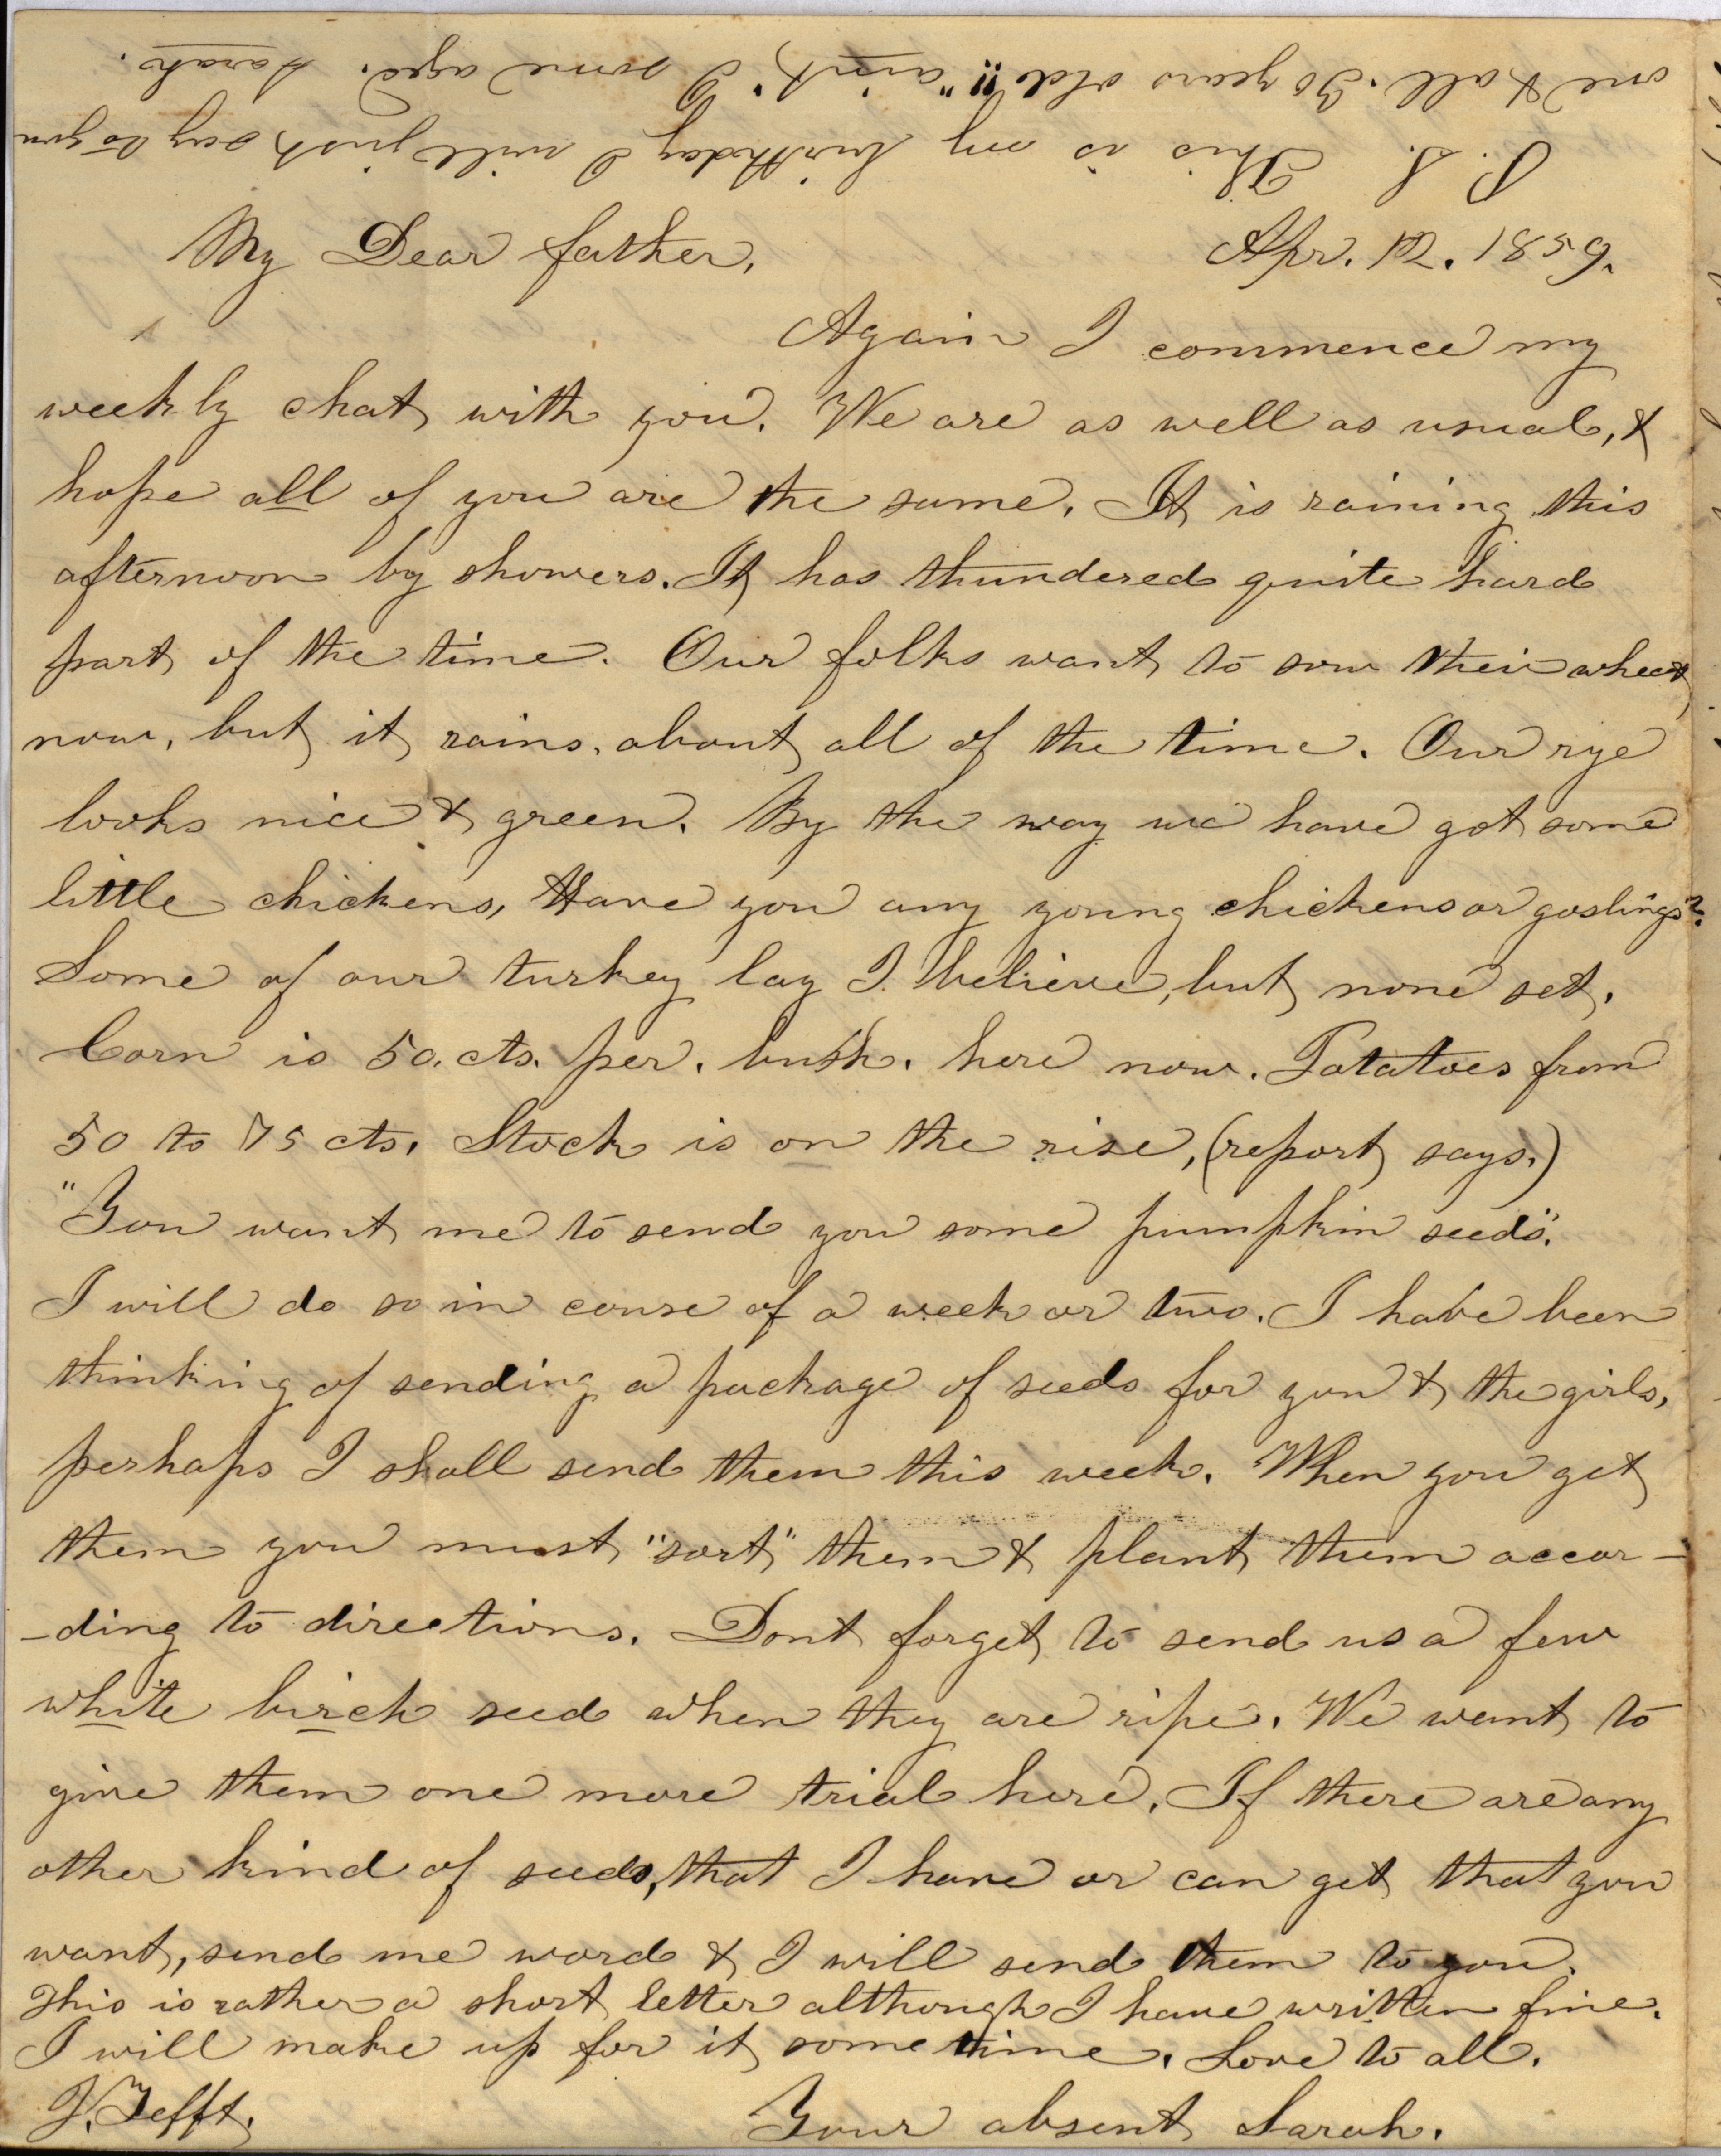 My Dear father, Apr. 12. 1859.
Again I commence my
weekly chat with you. We are as well as usual, &
hope all of you are the same. It is raining this
afternoon by showers. It has thundered quite hard
part of the time. Our folks want to sow their wheat
now, but it rains, about all of the time. Our rye
looks nice & green. By the way we have got some
little chickens, Have you any young chickens or goslings?
Some of our turkey lay I believe, but none set.
Corn is 50. cts. per. bush. here now. Potatoes from
50 to 75 cts. Stock is on the rise, (report says.)
"You want me to send you some pumpkin seeds".
I will do so in couse of a week or two. I have been
thinking of sending a package of seeds for you & the girls,
perhaps I shall send them this week. When you get
them you must "sort" them & plant them accor-
-ding to directions. Dont forget to send us a few
white birch seed when they are ripe. We want to
give them one more trial here. If there are any
other kind of seeds, that I have or can get that you
want, send me word & I will send them to you.
This is rather a short letter although I have written fine.
I will make up for it some time. Love to all.
J. Tefft. Your absent Sarah.
P. S. This is my birthday I will just say to you
one & all. 30 years old!! "aint" I some aged. Sarah.